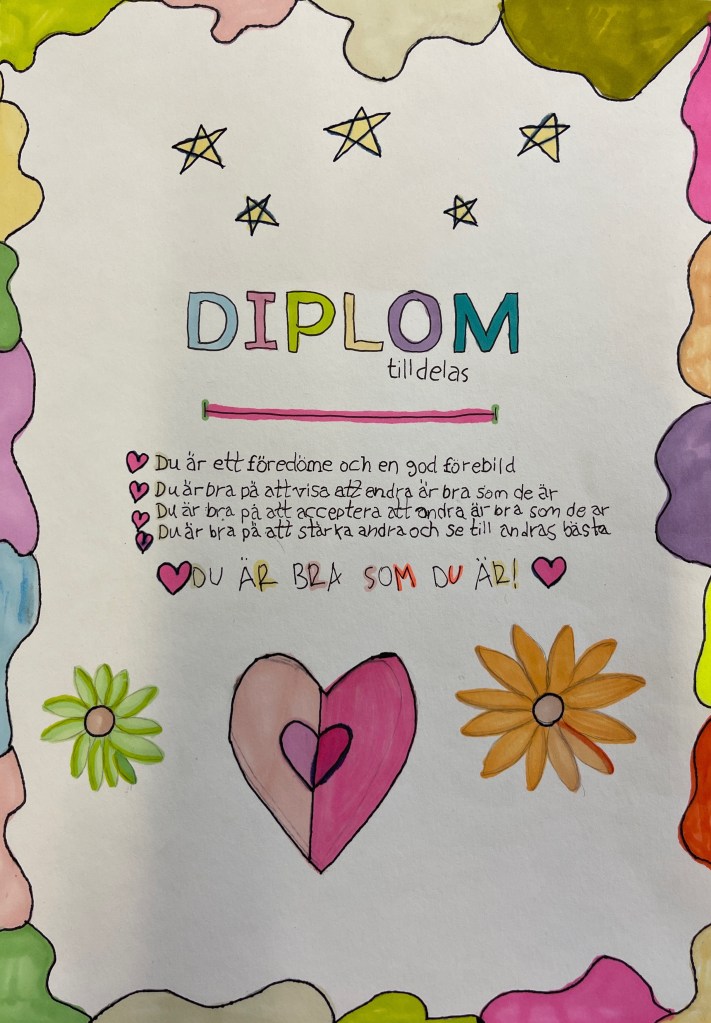 DIPLOM
tilldelas
Du är ett föredöme och en god förebild
Du är bra på att visa att andra är bra som de är
Du är bra på att acceptera att andra är bra som de är
Du är bra på att stärka andra och se till andras bästa
DU ÄR BRA SOM DU ÄR!